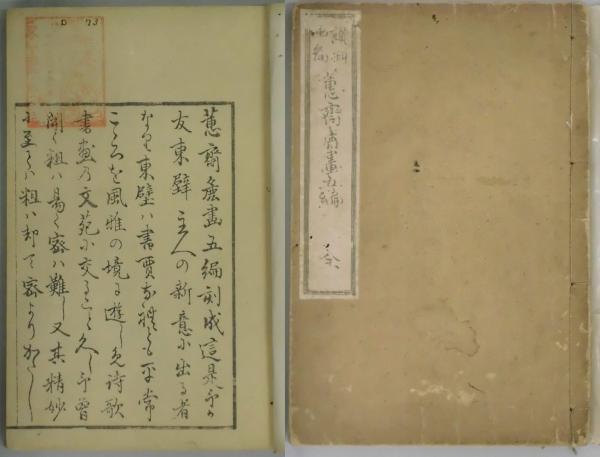 蕙齋麁畫五編刻成這是予か
友東壁主人の新意に出る者
なり東壁ハ書賈な れとも平常
こゝろを風雅の境に遊しめ詩歌
書畫乃文苑に交ること久し予曽
聞く粗ハ易く密ハ難し又其精妙
に至てハ粗ハ却て密より
蕙齋麁畫五編
全
D 73